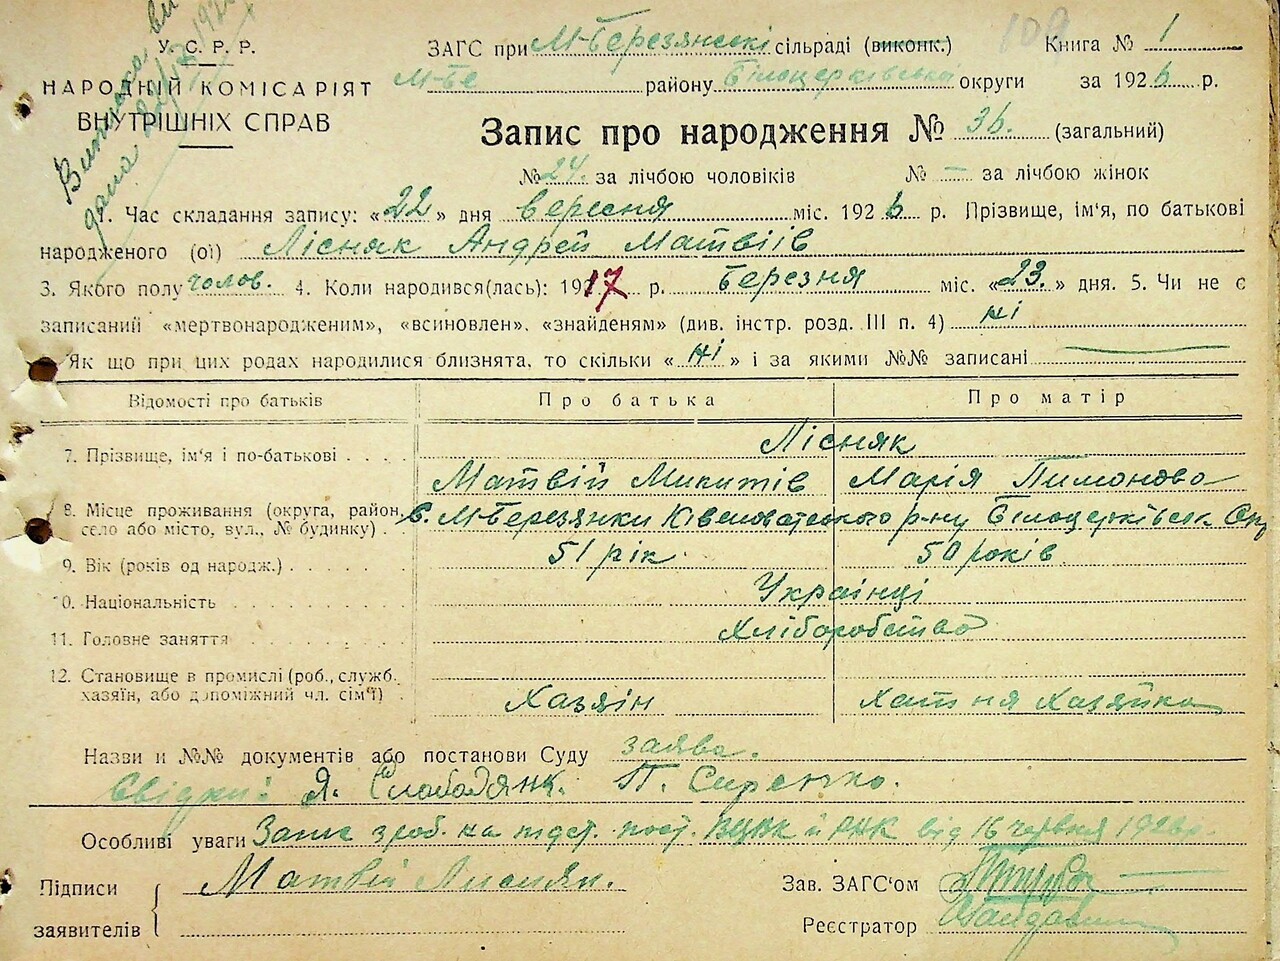 Виписка ви
дана
У.С.Р.Р.
НАРОДНІЙ КОМІСАРІЯТ
ВНУТРІШНІХ СПРАВ
109
ЗАГС при М-Березянські сільраді (виконк.) Книга № 1
М-Бе району Білоцерківської округи за 1926 р.
Запис про народження № 36. (загальний)
№ 24. за лічбою чоловіків № — за лічбою жінок
1. Час складання запису: «22» дня вересня міс. 1926 р. Прізвище, ім'я, по батькові
народженого (ої) Лісняк Андрей Матвіів
3. Якого полу чолов. 4. Коли народився(лась): 1917 р. Березня міс. «23.» дня. 5. Чи не є
записаний «мертвонародженим», «всиновлен», «знайденям» (див. інстр. розд. III п. 4) ні
Як що при цих родах народилися близнята, то скільки «ні» і за якими №№ записані —
Відомості про батьків Про батька Про матір
7. Прізвище, ім'я і по-батькові Лісняк
Матвій Микитів Марія Пимонова
8. Місце проживання (округа, район, село або місто, вул., № будинку) с. М-Березянки р-ну Білоцерківськ. Окр
9. Вік (років од народж.) 51 рік. 50 років.
10. Національність Украінці
11. Головне заняття Хліборобство
12. Становище в промислі (роб., служб. хазяїн, або допоміжний чл. сім'ї) Хазяін Хатня Хазяйка
Назви и №№ документів або постанови Суду заява.
Свідки: Я. Слободянк. П. Сиренко.
Особливі уваги Запис зроб. на підст. пост. ВЦВК й РНК від 16 червня 1926 р.
Підписи заявителів Матвій Лисняк.
Зав. ЗАГС'ом
Реєстратор